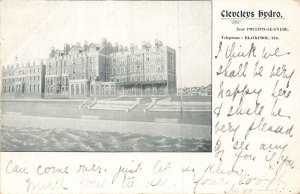 Cleveleys Hydro.
Near POULTON-LE-FYLDE.
Telephone : BLACKPOOL,
I think we
shall be very
happy here
& shall be
very pleased
to see any
of you if you
can come over. just let us know
Much love to